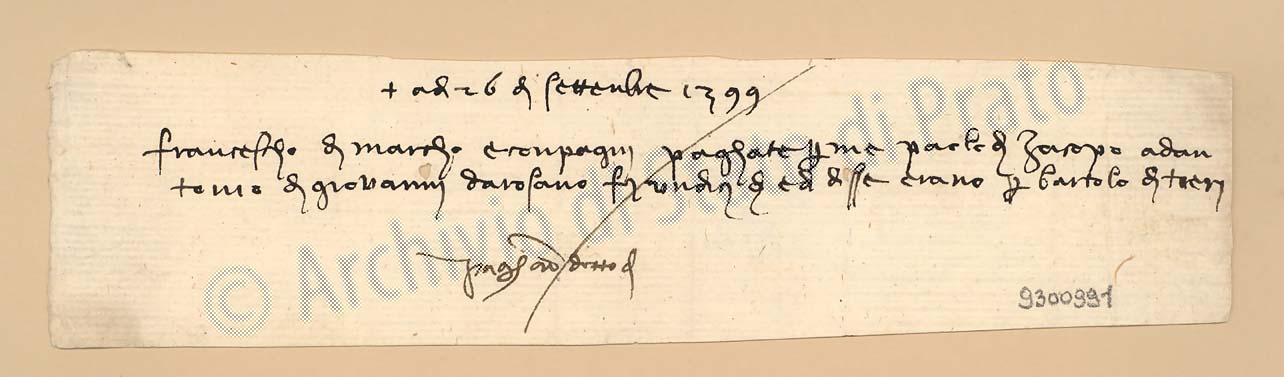 + adi 26 di settenbre 1399
francescho di marcho e conpagni paghate per me paolo di Jacopo adan
tonio di giovanni darosano f undici di e di disse erano per bartolo di
paghato detto di
© Archivio di Stato di Prato
9300991